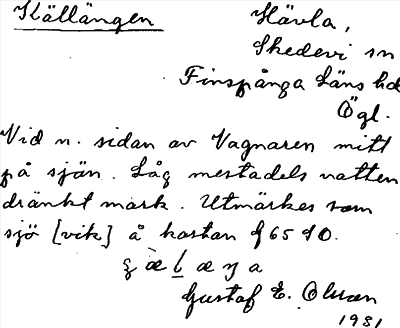 Källängen Hävla,
Skedevi sn
Finspånga Läns hd
Ögl.
Vid n. sidan av Vagnaren mitt
på sjön. Låg mestadels vatten
dränkt mark. Utmärkes som
sjö [vik] å kartan f 65 S O.
Gustaf E. Olsson
1931